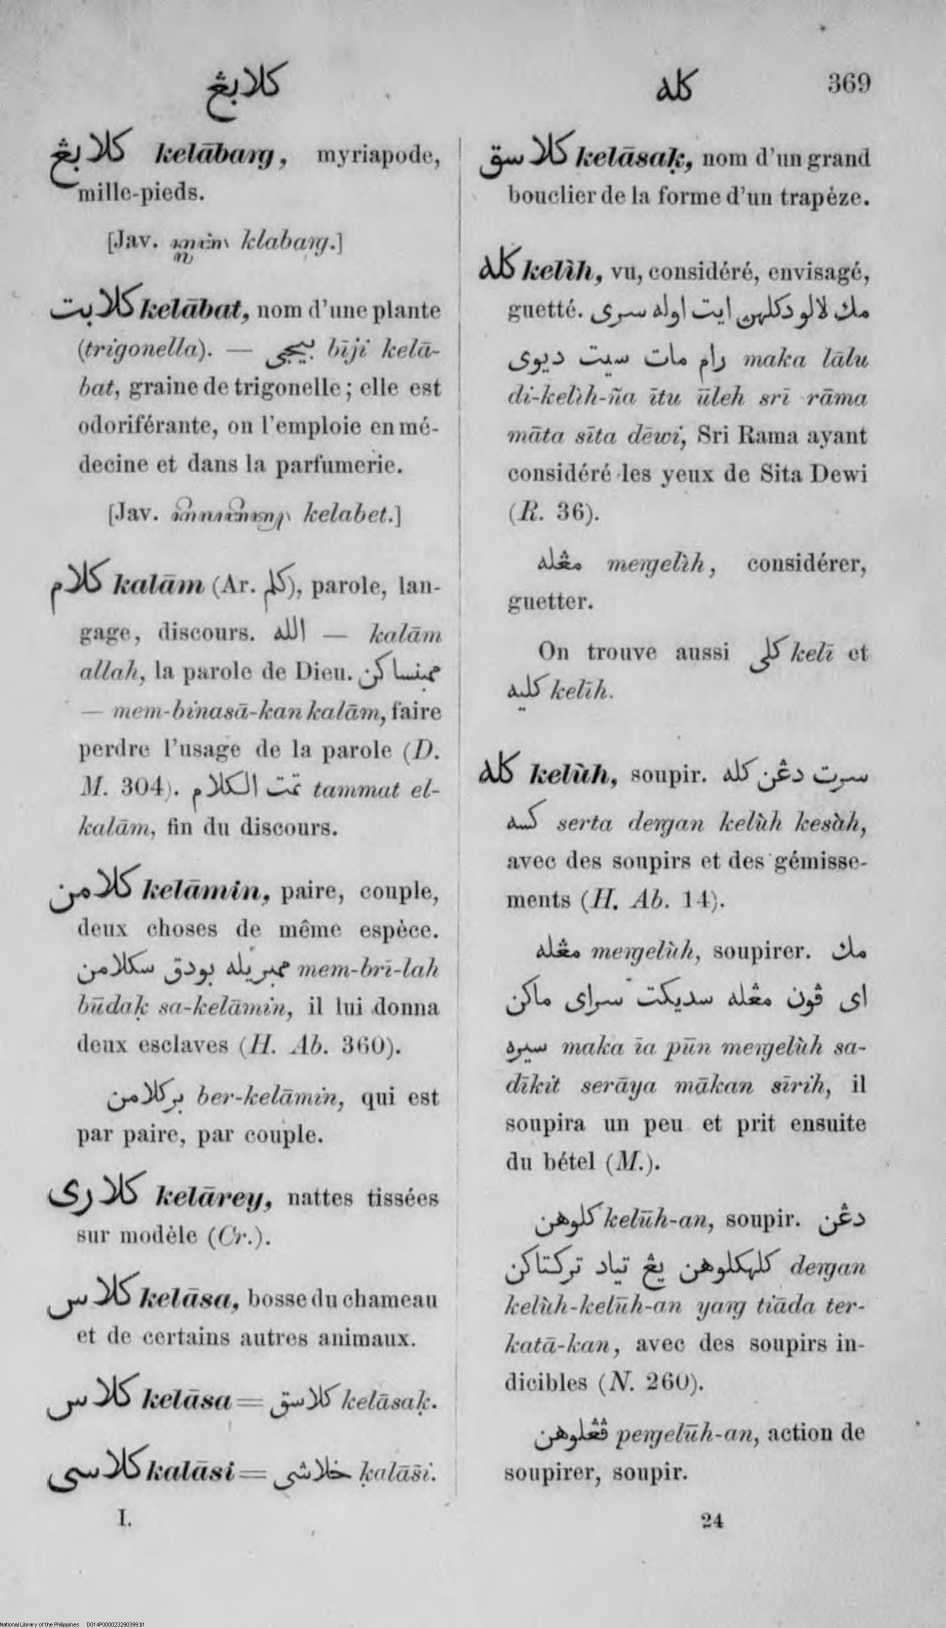 كلابڠ
كله
369
كلابڠ kelābaŋg, myriapode,
mille-pieds.
[Jav. klabaŋg.]
كلابت kelābat, nom d'une plante
(trigonella). — بيجي bīji kelā-
bat, graine de trigonelle; elle est
odoriférante, on l'emploie en mé-
decine et dans la parfumerie.
[Jav. kelabet.]
كلام kalām (Ar. كلم), parole, lan-
gage, discours. الله — kalām
allah, la parole de Dieu. ممبنساكن
— mem-binasā-kan kalām, faire
perdre l'usage de la parole (D.
M. 304). تمت الكلام tammat el-
kalām, fin du discours.
كلامن kelāmin, paire, couple,
deux choses de même espèce.
ممبريله بودق سكلامن mem-brī-lah
būdaḳ sa-kelāmin, il lui donna
deux esclaves (H. Ab. 360).
بركلامن ber-kelāmin, qui est
par paire, par couple.
كلارى kelārey, nattes tissées
sur modèle (Cr.).
كلاس kelāsa, bosse du chameau
et de certains autres animaux.
كلاس kelāsa = كلاسق kelāsaḳ.
كلاسى kalāsi = خلاشى ḳalāši.
I.
كلاسق kelāsaḳ, nom d'un grand
bouclier de la forme d'un trapèze.
كله kelìh, vu, considéré, envisagé,
guetté. مك لالو دكلهن ايت اوله سرى
رام مات سيت ديوى maka lālu
di-kelìh-ña ītu ūleh srī rāma
māta sīta dēwi, Sri Rama ayant
considéré les yeux de Sita Dewi
(R. 36).
مڠله meŋgelìh, considérer,
guetter.
On trouve aussi كلى kelī et
كليه kelīh.
كله kelùh, soupir. سرت دڠن كله
كسه serta deŋgan kelùh kesàh,
avec des soupirs et des gémisse-
ments (H. Ab. 14).
مڠله meŋgelùh, soupirer. مك
اى ڤون مڠله سديكت سراى ماكن
سيره maka īa pūn meŋgelùh sa-
dīkit serāya mākan sīrih, il
soupira un peu et prit ensuite
du bétel (M.).
كلوهن kelūh-an, soupir. دڠن
كلهكلوهن يڠ تياد تركتاكن deŋgan
kelùh-kelūh-an yaŋg tiāda ter-
katā-kan, avec des soupirs in-
dicibles (N. 260).
ڤڠلوهن peŋgelūh-an, action de
soupirer, soupir.
24
National Library of the Philippines